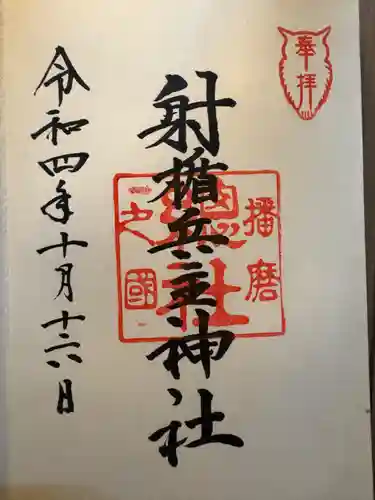 奉拝
播磨
総社
之國
射楯兵主神社
令和四年十月十六日